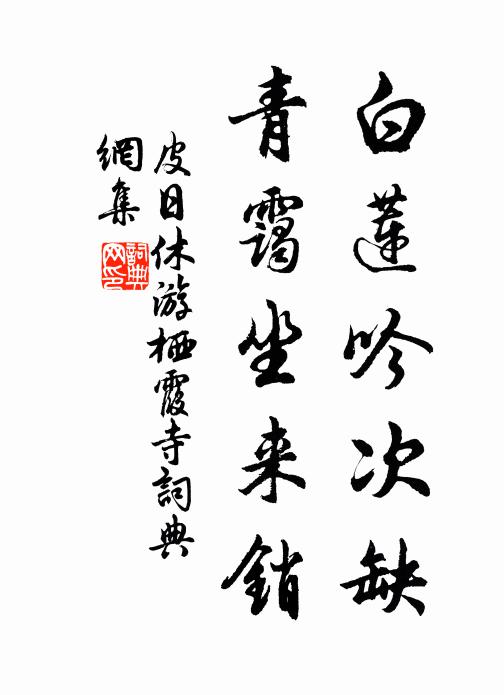 白蓮吟次缺
青靄坐来銷
皮日休游栖霞寺詞典
網集
詞典网印